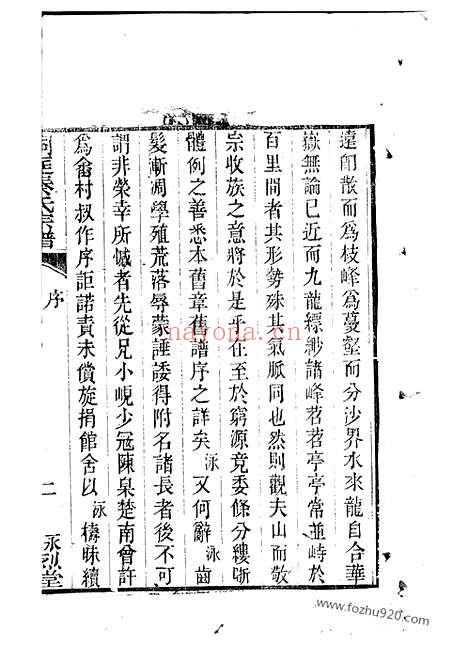 遠卽散而爲枝峰爲蔓壑而分沙界水來龍自合華
嶽無論已近而九龍縹緲諸峰苕苕亭亭常並峙於
百里間者其形勢殊其氣脈同也然則觀夫山而敬
宗收族之意將於是乎在至於窮源竟委條分縷晰
體例之善悉本舊章舊譜序之詳矣泳又何辭泳齒
髮漸凋學殖荒落辱蒙諈諉得附名諸長者後不可
謂非榮幸所憾者先從兄小峴少冠陳臬楚南曾許
爲畬村叔作序詎諾責未償旋捐館舍以泳檮昧續
秦氏宗譜
序
二
永烈堂
nayona.cn
www.fozhu920.com